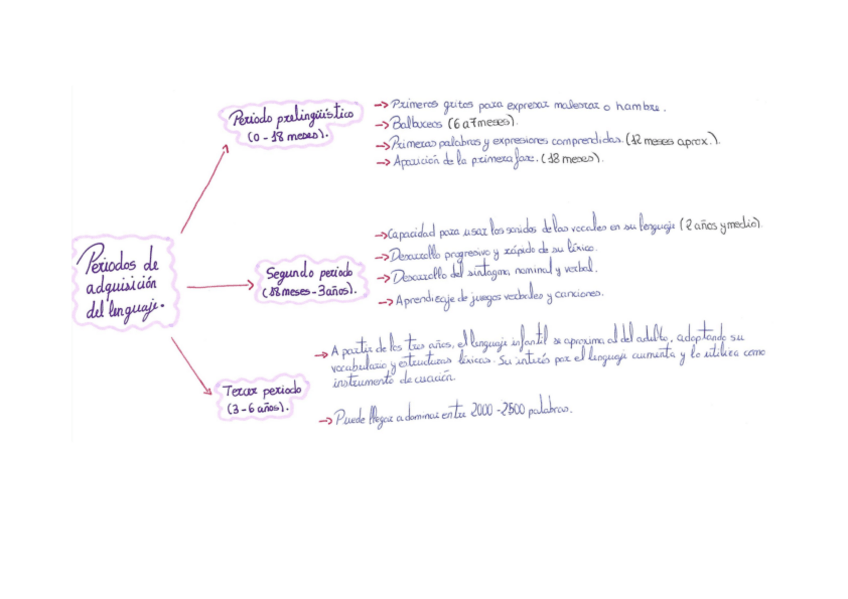 Periodos de
adquisición
del lenguaje.
Periodo prelingüístico
(0 - 18 meses).
→ Primeros gritos para expresar malestar o hambre.
→ Balbuceos (6 a 7 meses).
→ Primeras palabras y expresiones comprendidas. (12 meses aprox.).
→ Aparición de la primera frase. (18 meses).
Segundo periodo
(18 meses - 3 años).
→ Capacidad para usar los sonidos de las vocales en su lenguaje (2 años y medio).
→ Desarrollo progresivo y rápido de su léxico.
→ Desarrollo del sintagma nominal y verbal.
→ Aprendizaje de juegos verbales y canciones.
Tercer periodo
(3 - 6 años).
→ A partir de los tres años, el lenguaje infantil se aproxima al del adulto, adoptando su
vocabulario y estructuras léxicas. Su interés por el lenguaje aumenta y lo utiliza como
instrumento de
→ Puede llegar a dominar entre 2000 - 2500 palabras.